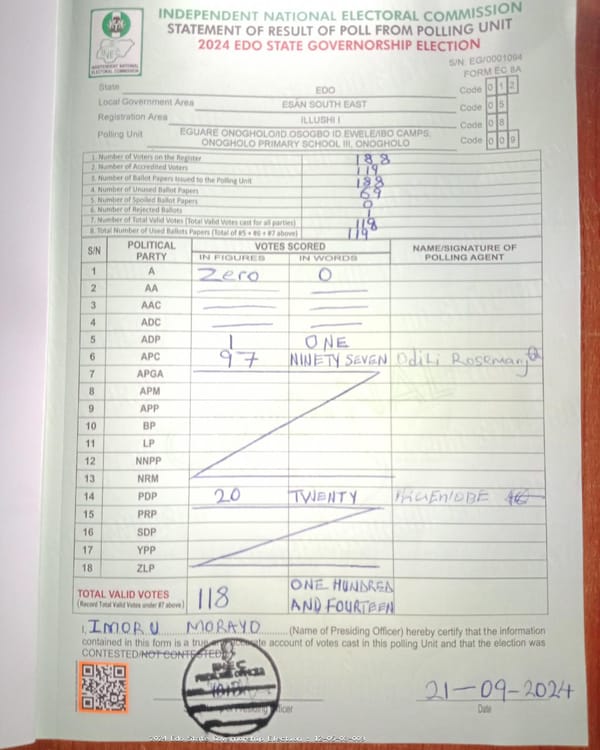 INDEPENDENT NATIONAL ELECTORAL COMMISSION
STATEMENT OF RESULT OF POLL FROM POLLING UNIT
2024 EDO STATE GOVERNORSHIP ELECTION
INEC
INDEPENDENT NATIONAL ELECTORAL COMMISSION
S/N: EG/0001094
FORM EC 8A
State EDO Code 0 1 2
Local Government Area ESAN SOUTH EAST Code 0 5
Registration Area ILLUSHI I Code 0 8
Polling Unit EGUARE ONOGHOLO/ID.OSOGBO ID EWELE/IBO CAMPS, ONOGHOLO PRIMARY SCHOOL III, ONOGHOLO Code 0 0 9
1. Number of Voters on the Register 188
2. Number of Accredited Voters 119
3. Number of Ballot Papers Issued to the Polling Unit 188
4. Number of Unused Ballot Papers 69
5. Number of Spoiled Ballot Papers 0
6. Number of Rejected Ballots 1
7. Number of Total Valid Votes (Total Valid Votes cast for all parties) 118
8. Total Number of Used Ballots Papers (Total of #5 + #6 + #7 above) 119
S/N POLITICAL PARTY VOTES SCORED NAME/SIGNATURE OF POLLING AGENT
IN FIGURES IN WORDS
1 A Zero 0
2 AA
3 AAC
4 ADC
5 ADP 1 ONE
6 APC 97 NINETY SEVEN Odili Rosemary
7 APGA
8 APM
9 APP
10 BP
11 LP
12 NNPP
13 NRM
14 PDP 20 TWENTY
15 PRP
16 SDP
17 YPP
18 ZLP
TOTAL VALID VOTES 118 ONE HUNDRED
(Record Total Valid Votes under #7 above) AND FOURTEEN
I, IMORU MORAYO (Name of Presiding Officer) hereby certify that the information
contained in this form is a true account of votes cast in this polling Unit and that the election was
CONTESTED/NOT CONTESTED
INEC
PRESIDING OFFICER
21-09-2024
Officer Date
2024 Edo State Governorship Election - 12-05-08-009